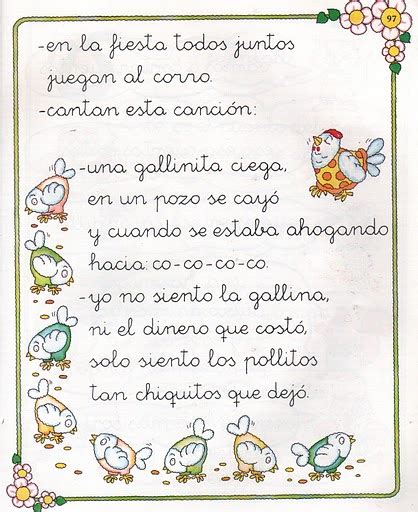 97
-en la fiesta todos juntos
juegan al corro.
-cantan esta canción:
-una gallinita ciega,
en un pozo se cayó
y cuando se estaba ahogando
hacia: co-co-co-co.
-yo no siento la gallina,
ni el dinero que costó,
solo siento los pollitos
tan chiquitos que dejó.